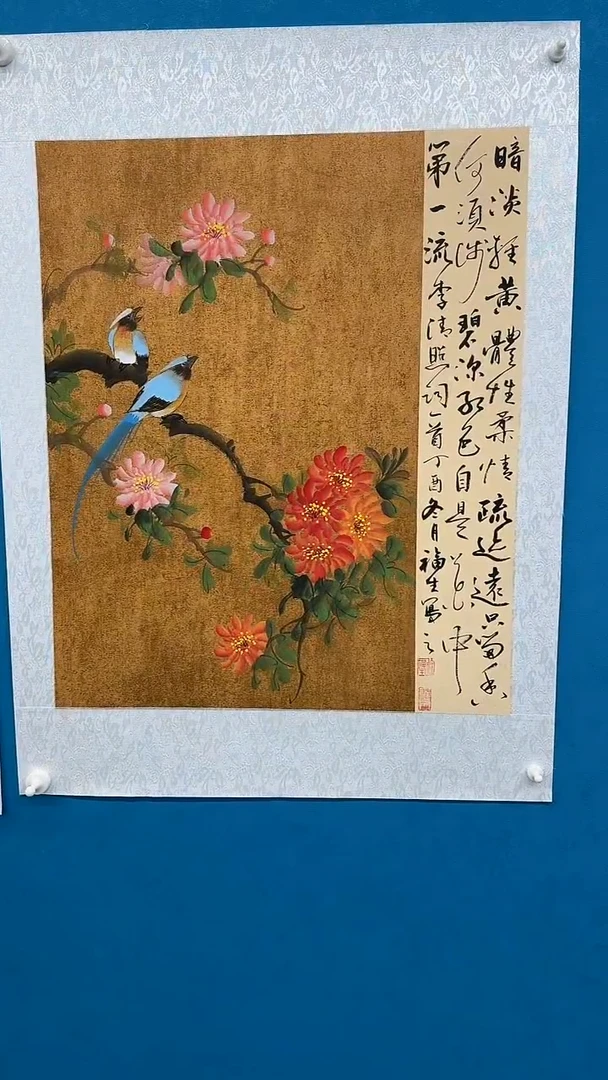 暗淡輕黄體性柔情疏迹遠只留香
何須浅碧深红色自是花中
第一流李清照词一首丁酉冬月福生寫之